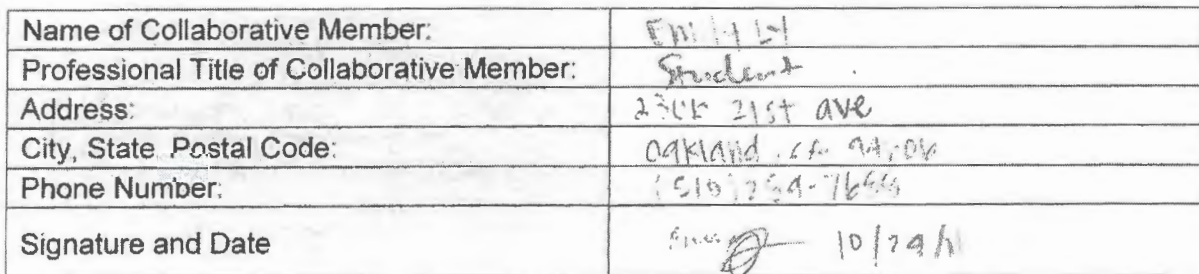 Name of Collaborative Member: Emily Ly
Professional Title of Collaborative Member: Student
Address: 21st ave
City, State Postal Code: Oakland, CA
Phone Number: (510)
Signature and Date 10/29/11